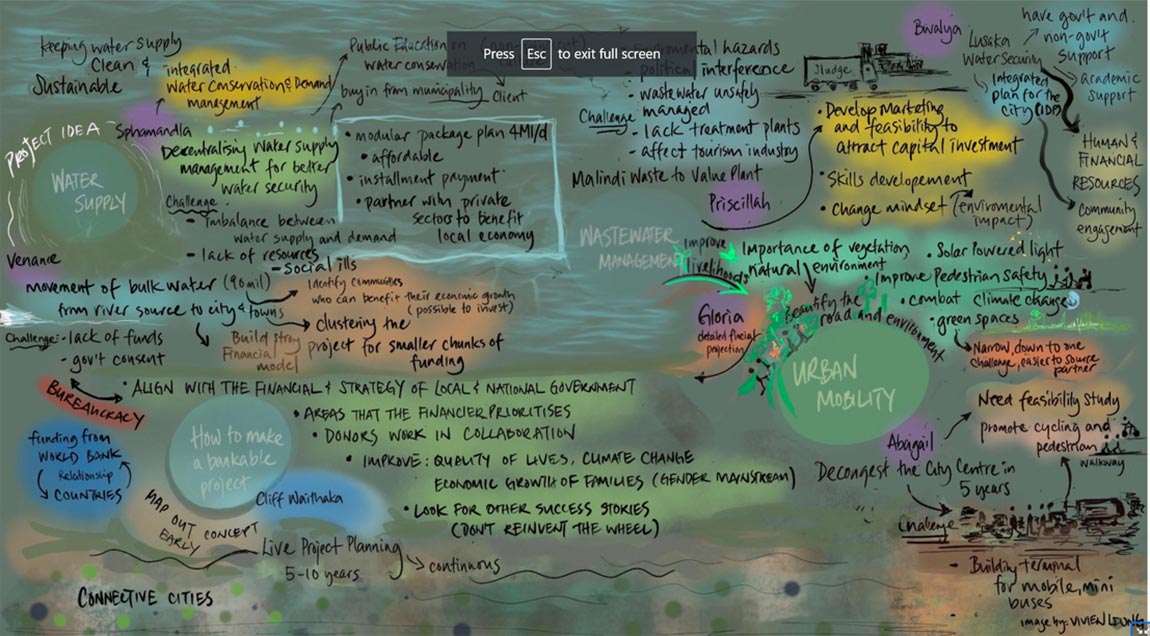 Keeping water supply
Clean &
Sustainable
integrated
Water Conservation & Demand
management
Public Education
water conservation
Press Esc to exit full screen
buy in from municipality
Client
PROJECT IDEA
WATER
SUPPLY
Sphamandla
Decentralising water supply
management for better
water security
Challenge
- imbalance between
water supply and demand
- lack of resources
- social ills
• modular package plan 4Ml/d
• affordable
• installment payment
• partner with private
sector to benefit
local economy
Venance
movement of bulk water (90mil)
from river source to city & towns
Identify communities
who can benefit their economic growth
(possible to invest)
clustering the
project for smaller chunks of
funding
Build strong
Financial
model
Challenge: - lack of funds
- gov't consent
BUREAUCRACY
hazards
political interference
- wastewater unsafely
managed
Challenge
- lack treatment plants
- affect tourism industry
Malindi Waste to Value Plant
Priscillah
WASTEWATER
MANAGEMENT
Sludge
• Develop Marketing
and feasibility to
attract capital investment
• Skills developement
• Change mindset (enviromental
impact)
Bwalya
Lusaka
Water Security
Integrated
plan for the
City (IDP)
have gov't and
non-gov't
support
academic
support
HUMAN &
FINANCIAL
RESOURCES
Community
engagement
Improve
livelihoods
Importance of vegetation
natural environment
Beautify the
road and enviroment
• Solar Powered light
Improve Pedestrian Safety
• combat climate change
• green spaces
Gloria
projection
Narrow down to one
challenge, easier to source
partner
URBAN
MOBILITY
Need feasibility study
promote cycling and
pedestrian
walkway
Abagail
Decongest the City Centre in
5 years
Challenge
- Building terminal
for mobile, mini
buses
• ALIGN WITH THE FINANCIAL & STRATEGY OF LOCAL & NATIONAL GOVERNMENT
• AREAS THAT THE FINANCIER PRIORITISES
• DONORS WORK IN COLLABORATION
• IMPROVE: QUALITY OF LIVES, CLIMATE CHANGE
ECONOMIC GROWTH OF FAMILIES (GENDER MAINSTREAM)
• LOOK FOR OTHER SUCCESS STORIES
(DON'T REINVENT THE WHEEL)
How to make
a bankable
project
funding from
WORLD BANK
Relationship
COUNTRIES
Cliff Waithaka
MAP OUT CONCEPT
EARLY
Live Project Planning
5-10 years
continuous
CONNECTIVE CITIES
image by: VIVIEN LEUNG